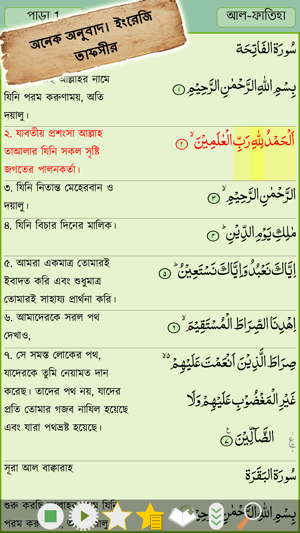 পাড়া 1
আল-ফাতিহা
অনেক অনুবাদ। ইংরেজি
তাফসীর
سُورَةُ الْفَاتِحَة
আল্লাহর নামে
যিনি পরম করুণাময়, অতি
দয়ালু।
بِسْمِ اللّٰهِ الرَّحْمٰنِ الرَّحِيْمِ ﴿١﴾
২. যাবতীয় প্রশংসা আল্লাহ
তাআলার যিনি সকল সৃষ্টি
জগতের পালনকর্তা।
اَلْحَمْدُ لِلّٰهِ رَبِّ الْعٰلَمِيْنَ ۙ﴿٢﴾
৩. যিনি নিতান্ত মেহেরবান ও
দয়ালু।
الرَّحْمٰنِ الرَّحِيْمِ ۙ﴿٣﴾
৪. যিনি বিচার দিনের মালিক।
مٰلِكِ يَوْمِ الدِّيْنِ ؕ﴿٤﴾
৫. আমরা একমাত্র তোমারই
ইবাদত করি এবং শুধুমাত্র
তোমারই সাহায্য প্রার্থনা করি।
اِيَّاكَ نَعْبُدُ وَاِيَّاكَ نَسْتَعِيْنُ ؕ﴿٥﴾
৬. আমাদেরকে সরল পথ
দেখাও,
اِهْدِنَا الصِّرَاطَ الْمُسْتَقِيْمَ ۙ﴿٦﴾
৭. সে সমস্ত লোকের পথ,
যাদেরকে তুমি নেয়ামত দান
করেছ। তাদের পথ নয়, যাদের
প্রতি তোমার গজব নাযিল হয়েছে
এবং যারা পথভ্রষ্ট হয়েছে।
صِرَاطَ الَّذِيْنَ اَنْعَمْتَ عَلَيْهِمْ ۙ
غَيْرِ الْمَغْضُوْبِ عَلَيْهِمْ وَلَا
الضَّآلِّيْنَ ﴿٧﴾
সূরা আল বাক্বারাহ
سُورَةُ الْبَقَرَة
শুরু করছি যিনি
পরম দয়ালু।
بِسْمِ اللّٰهِ الرَّحْمٰنِ الرَّحِيْمِ